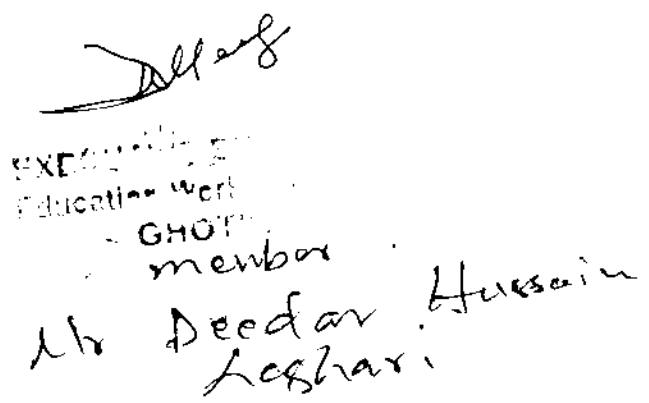 Education Work
GHOT
member
Mr Deedar Hussain
Laghari.